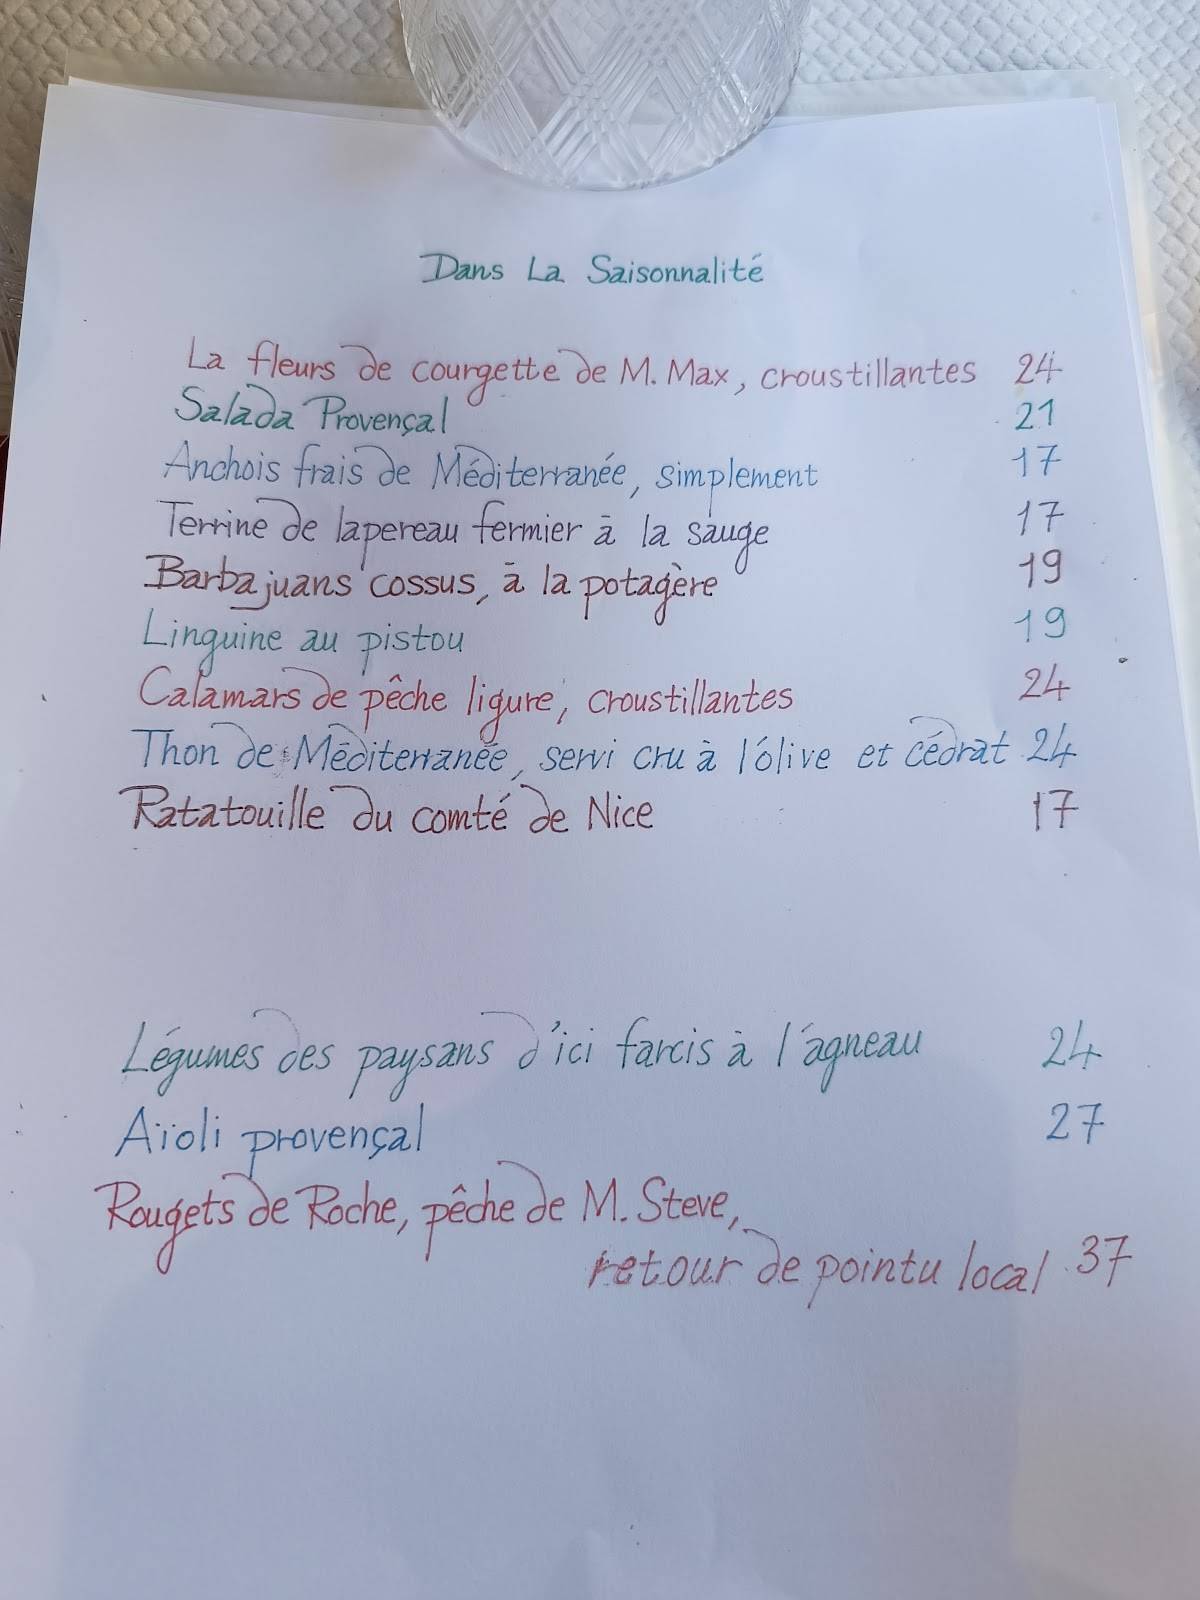 Dans La Saisonnalité
La fleurs de courgette de M. Max, croustillantes 24
Salada Provençal 21
Anchois frais de Méditerranée, simplement 17
Terrine de lapereau fermier à la sauge 17
Barbajuans cossus, à la potagère 19
Linguine au pistou 19
Calamars de pêche ligure, croustillantes 24
Thon de Méditerranée, servi cru à l'olive et cédrat 24
Ratatouille du comté de Nice 17
Légumes des paysans d'ici farcis à l'agneau 24
Aïoli provençal 27
Rougets de Roche, pêche de M. Steve,
retour de pointu local 37